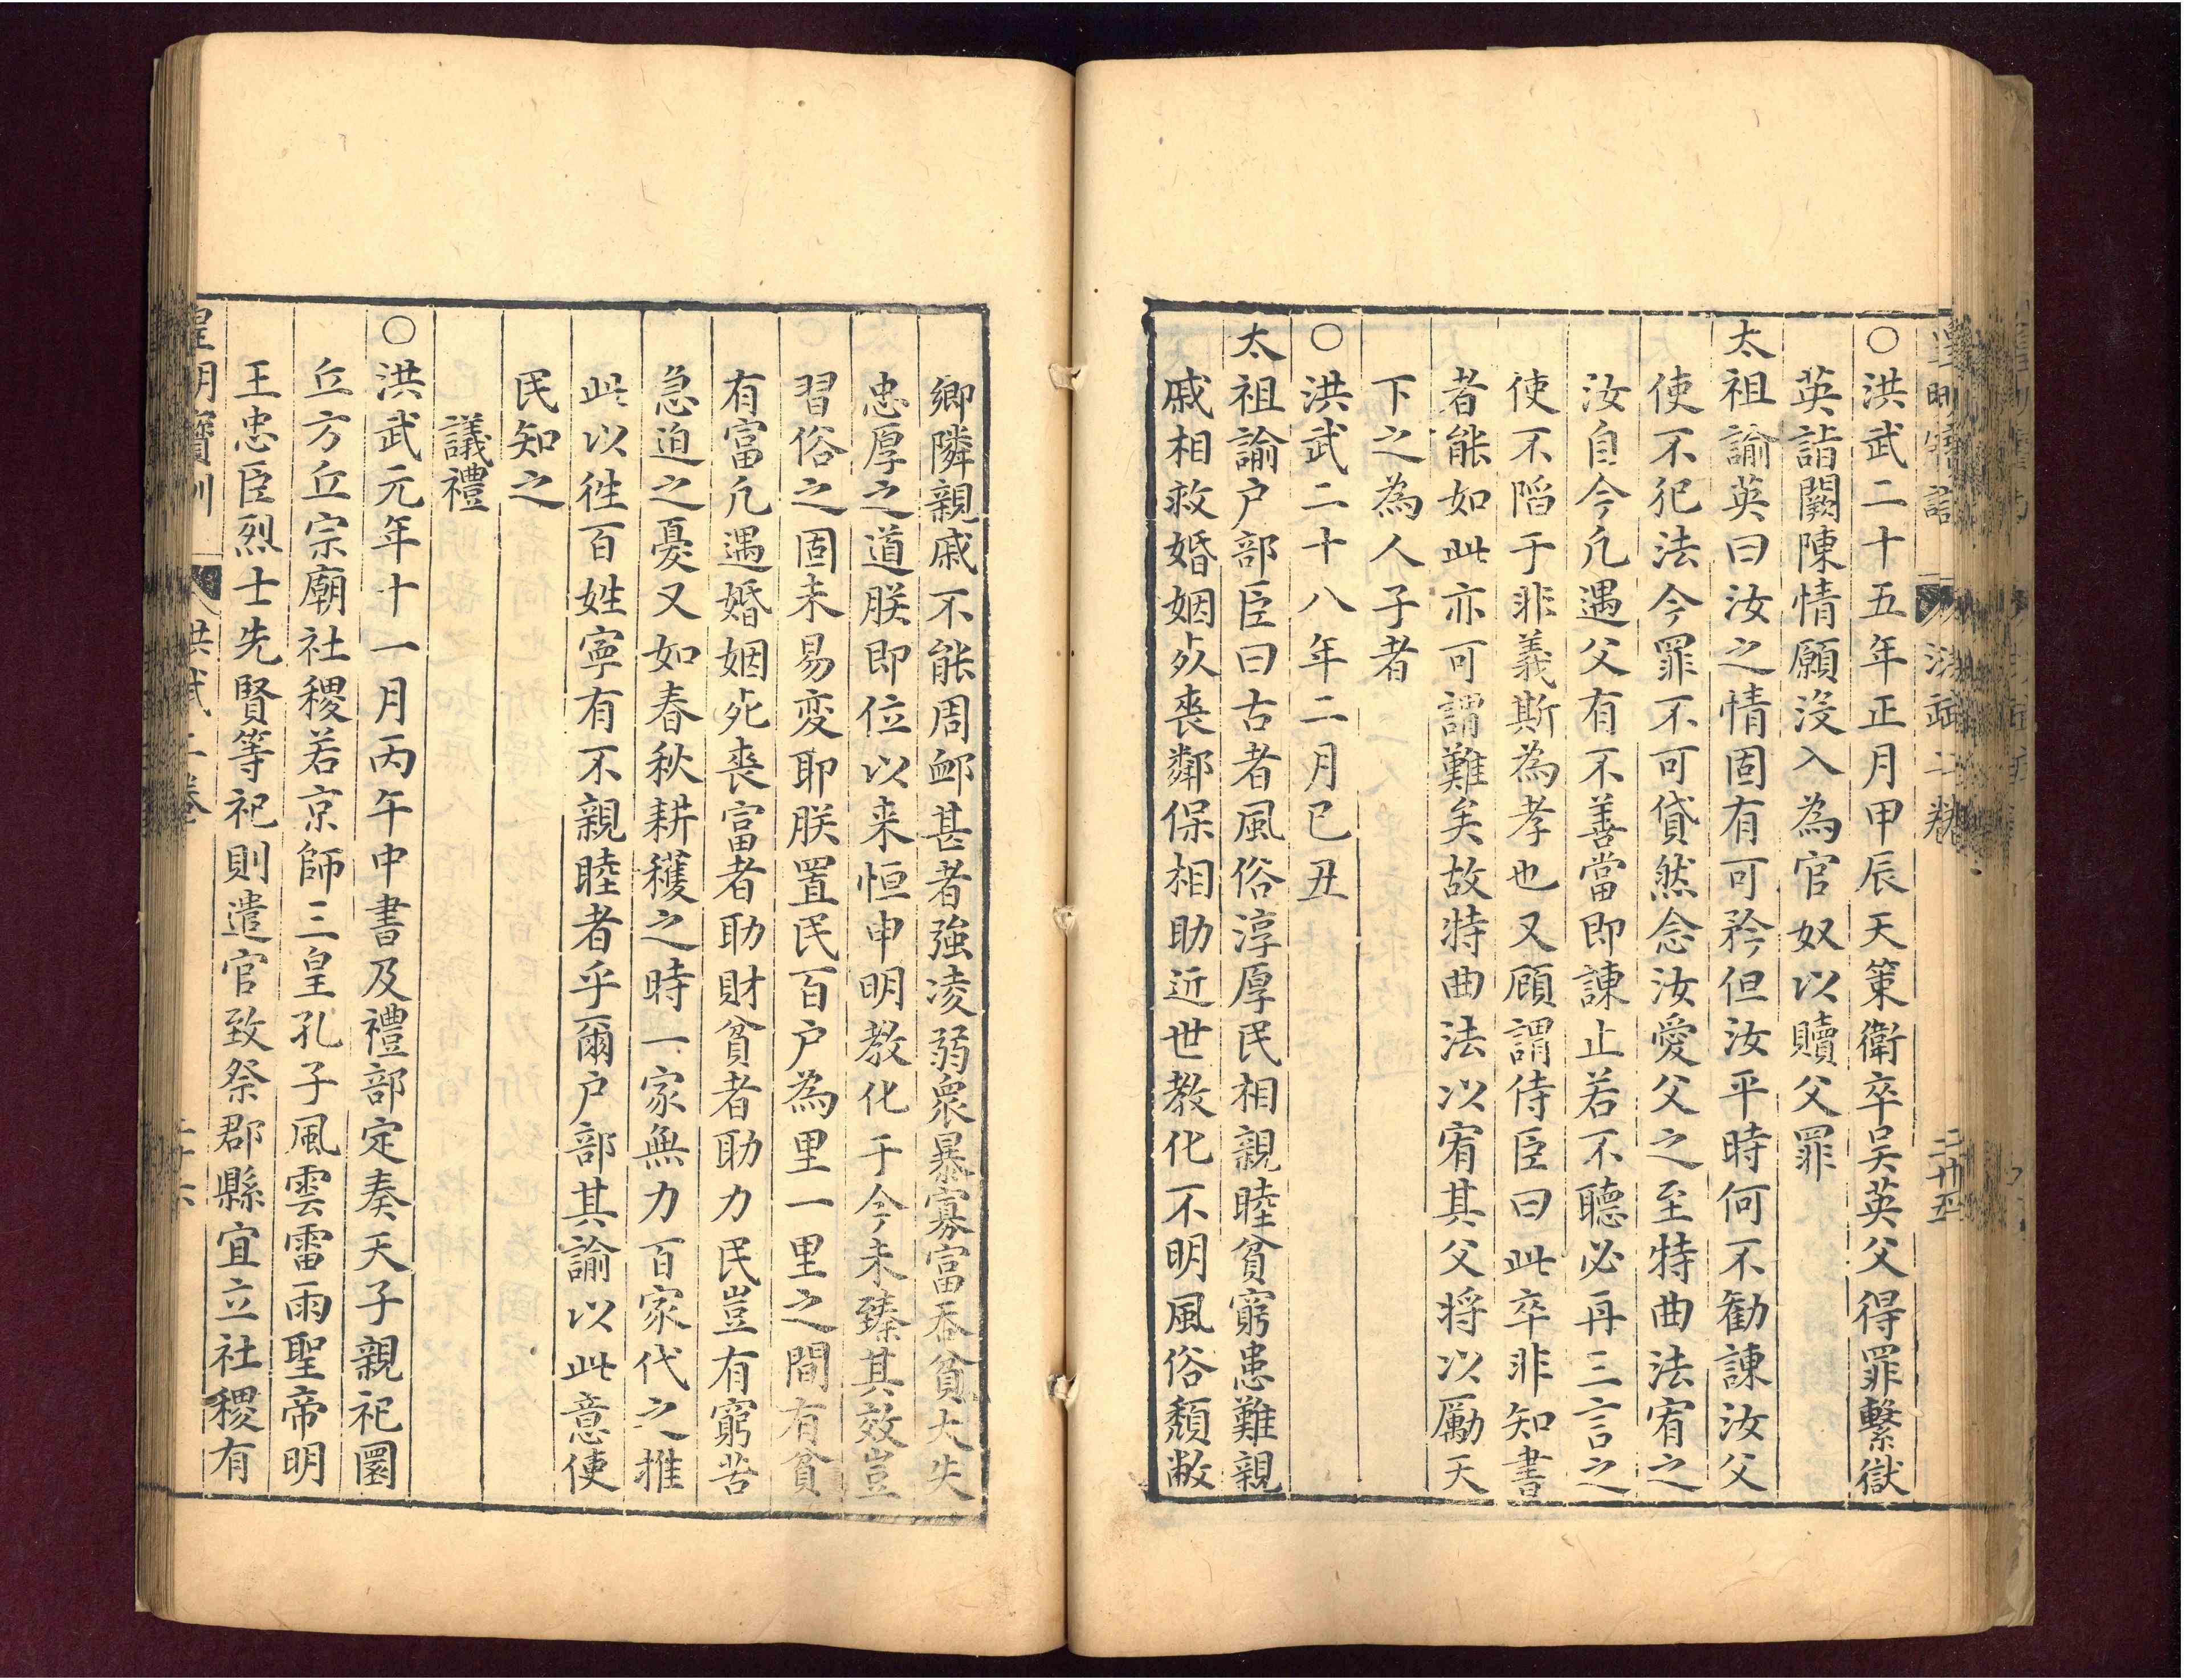 ○洪武二十五年正月甲辰天策衛卒吳英父得罪繫獄
英詣闕陳情願沒入為官奴以贖父罪
太祖諭英曰汝之情固有可矜但汝平時何不勸諫汝父
使不犯法今罪不可貸然念汝愛父之至特曲法宥之
汝自今凢遇父有不善當即諫止若不聽必再三言之
使不陷于非義斯為孝也又顧謂侍臣曰此卒非知書
者能如此亦可謂難矣故特曲法以宥其父將以勵天
下之為人子者
○洪武二十八年二月已丑
太祖諭户部臣曰古者風俗淳厚民相親睦貧窮患難親
戚相救婚姻死喪鄰保相助近世教化不明風俗頹敝
鄉隣親戚不能周䘏甚者強凌弱衆暴寡富吞貧大失
忠厚之道朕即位以来恒申明教化于今未臻其效豈
習俗之固未易变耶朕置民百户為里一里之間有貧
有富凢遇婚姻死喪富者助財貧者助力民豈有窮苦
急迫之憂又如春秋耕穫之時一家無力百家代之推
此以徃百姓寧有不親睦者乎爾户部其諭以此意使
民知之
議禮
○洪武元年十一月丙午中書及禮部定奏天子親祀圜
丘方丘宗廟社稷若京師三皇孔子風雲雷雨聖帝明
王忠臣烈士先賢等祀則遣官致祭郡縣宜立社稷有
皇明寶訓 洪武二卷